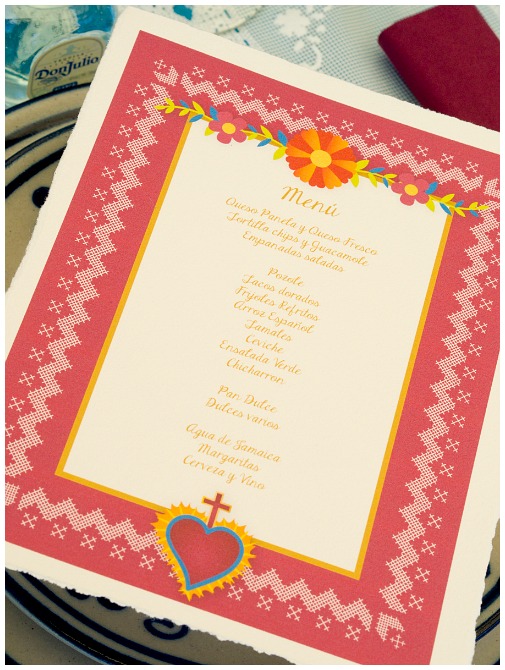 Don Julio
Menú
Queso Panela y Queso Fresco
Tortilla chips y Guacamole
Empanadas saladas
Pozole
Tacos dorados
Frijoles Refritos
Arroz Español
Tamales
Ceviche
Ensalada Verde
Chicharron
Pan Dulce
Dulces varios
Agua de Jamaica
Margaritas
Cerveza y Vino